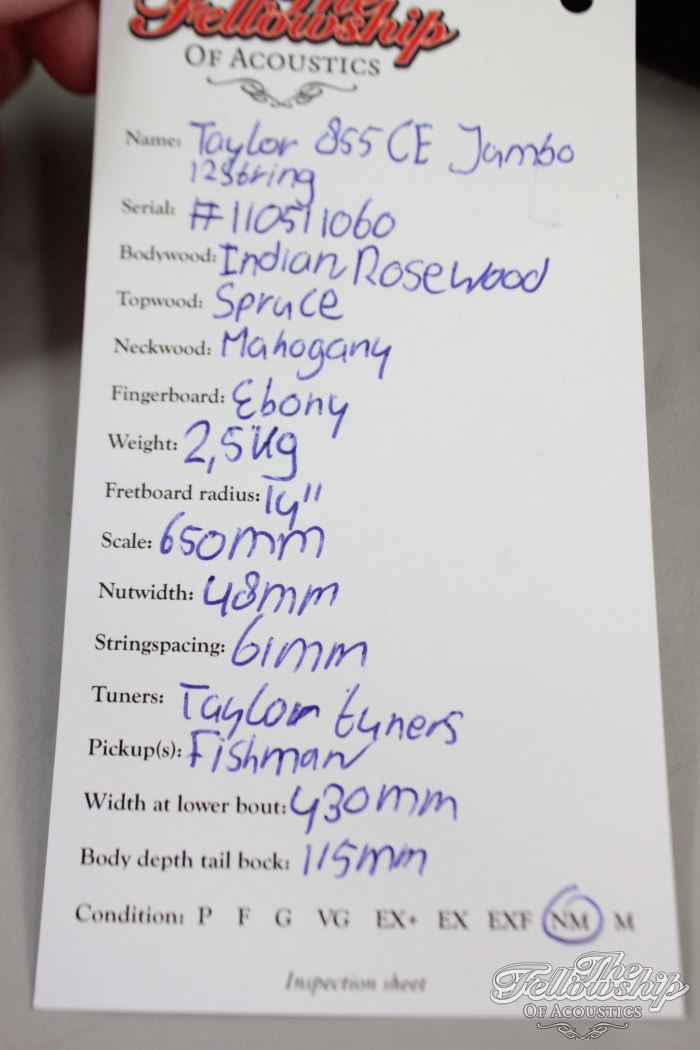 The
Fellowship
OF ACOUSTICS
Name: Taylor 855 CE Jumbo
12String
Serial: #110511060
Bodywood: Indian Rosewood
Topwood: Spruce
Neckwood: Mahogany
Fingerboard: Ebony
Weight: 2,5Kg
Fretboard radius: 14"
Scale: 650mm
Nutwidth: 48mm
Stringspacing: 61mm
Tuners: Taylor tuners
Pickup(s): Fishman
Width at lower bout: 430mm
Body depth tail bock: 115mm
Condition: P F G VG EX+ EX EXF NM M
Inspection sheet
The
Fellowship
OF ACOUSTICS